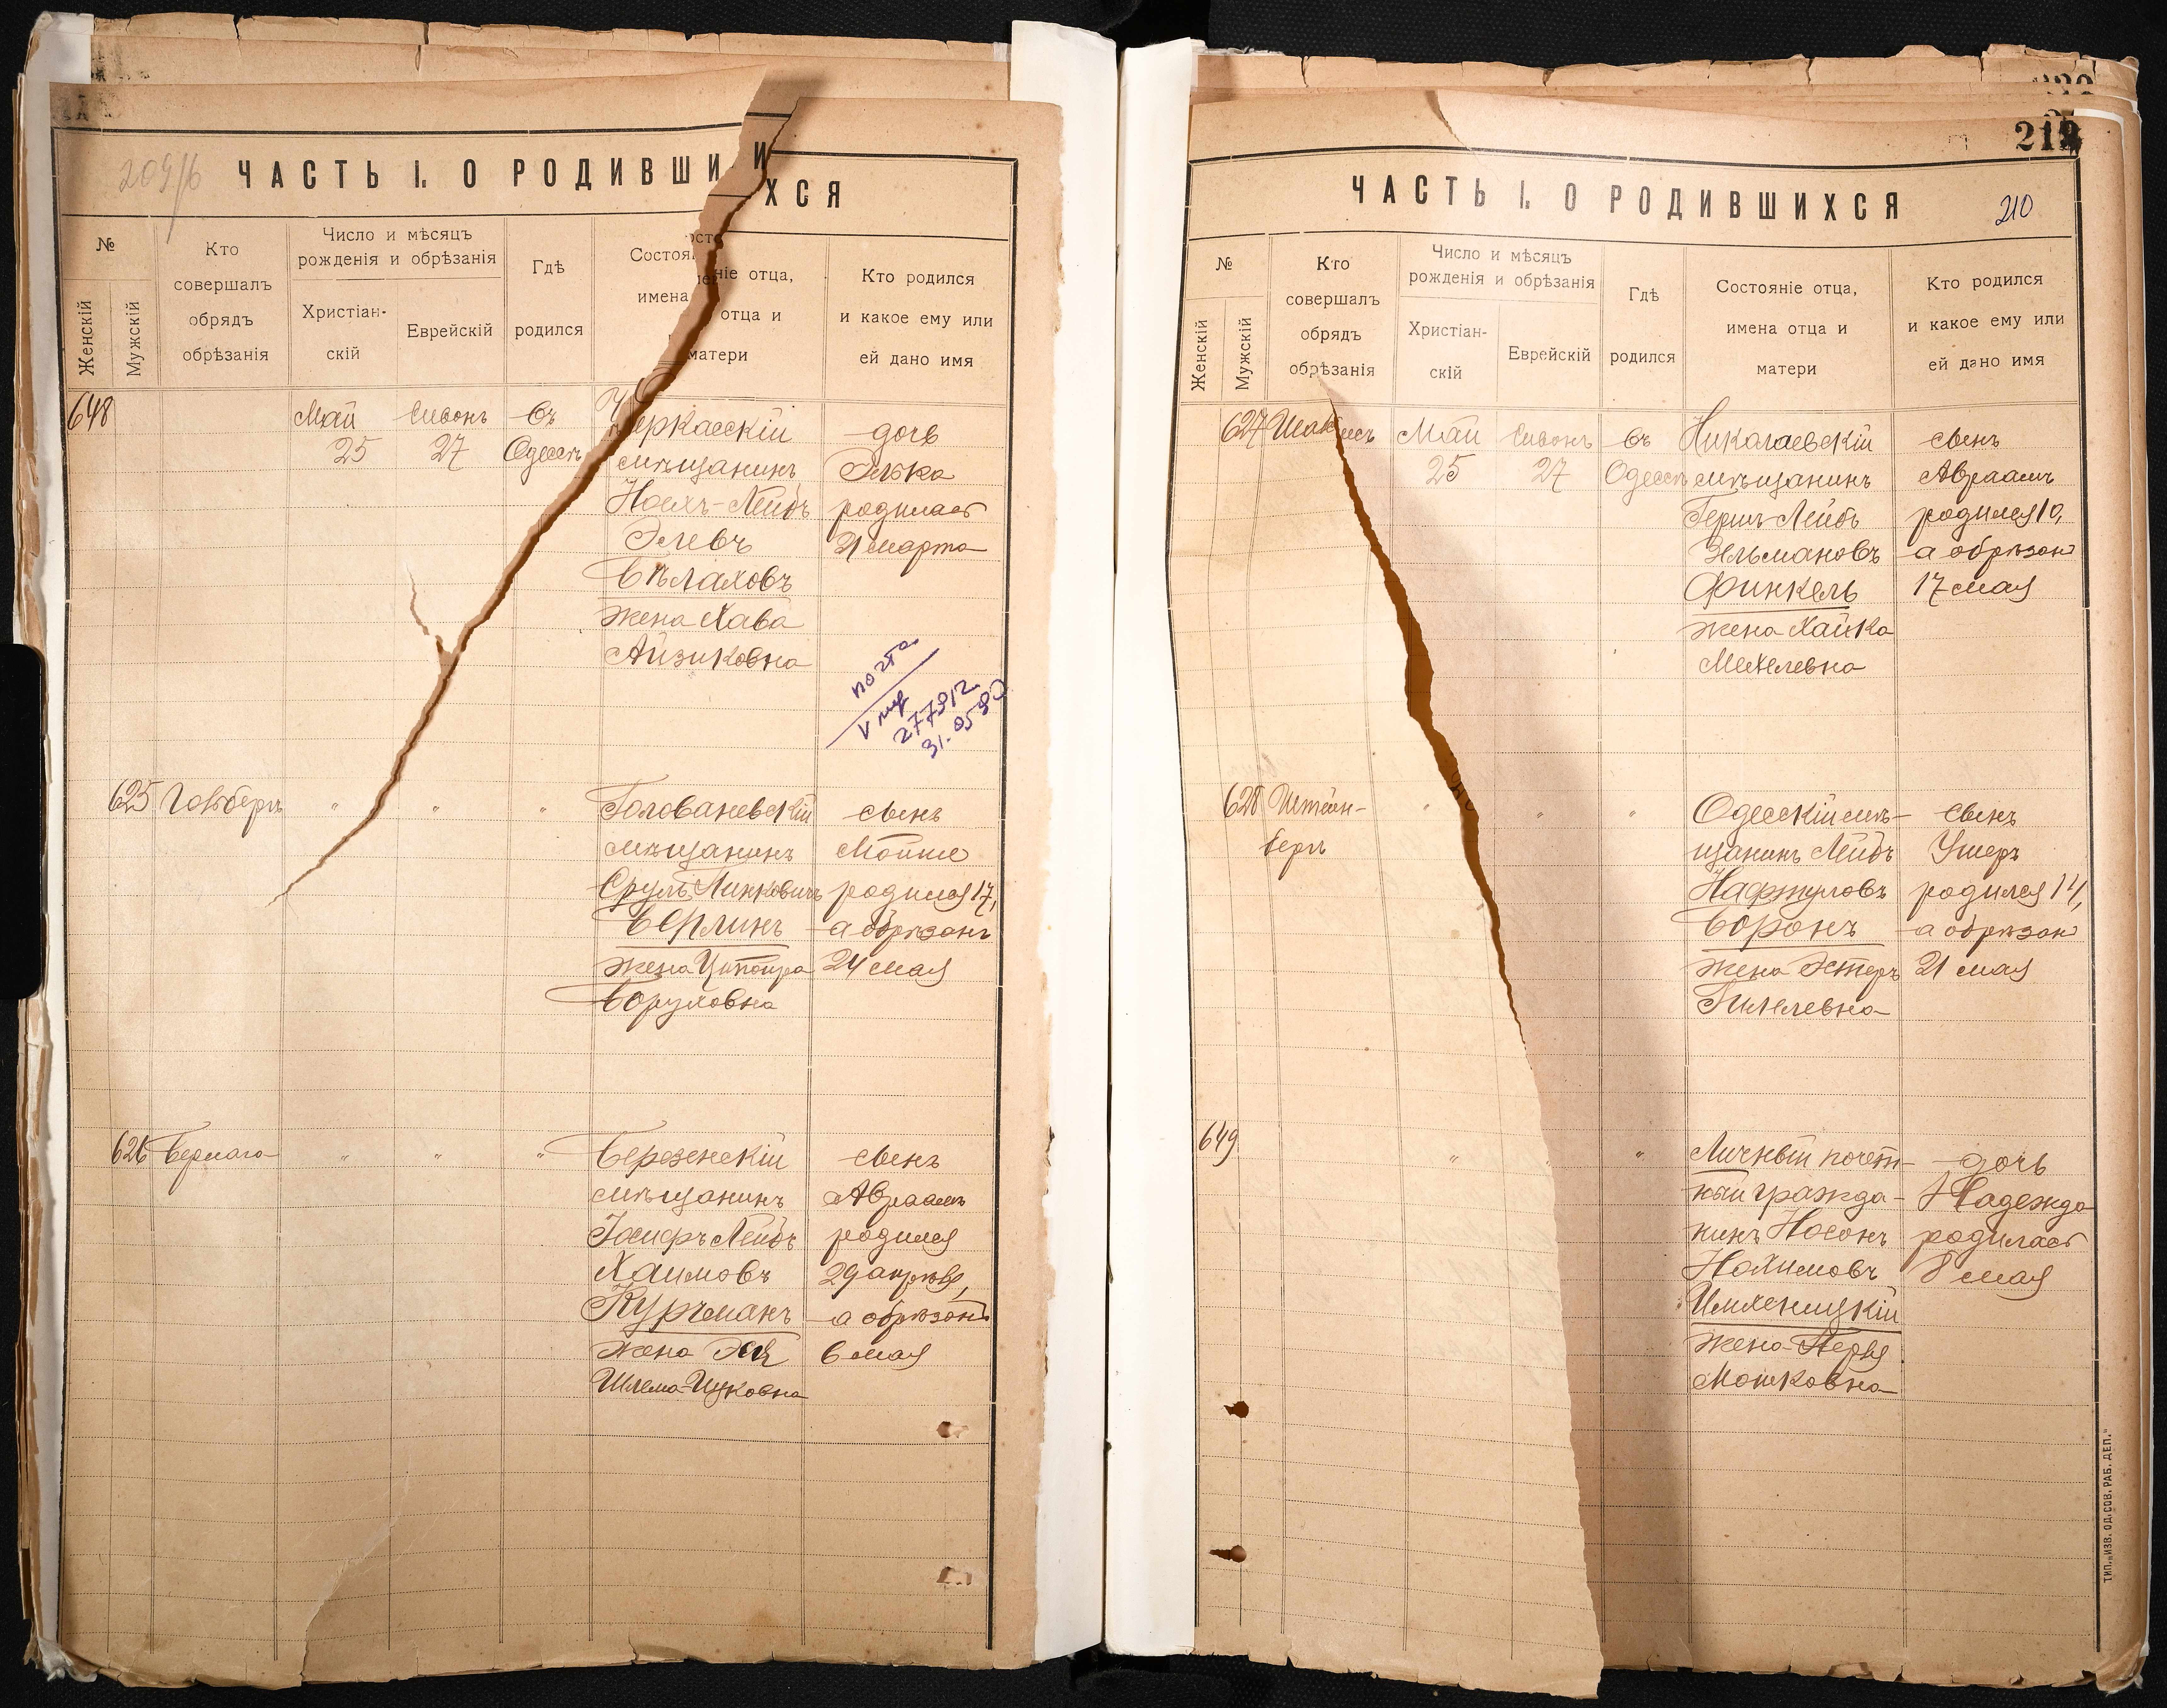 ЧАСТЬ I. О РОДИВШИХСЯ
№
Женскій
Мужскій
Кто совершалъ обрядъ обрѣзанія
Число и мѣсяцъ рожденія и обрѣзанія
Христіан-
скій
Еврейскій
Гдѣ родился
Состояніе отца,
имена отца и
матери
Кто родился
и какое ему или
ей дано имя
648
Май
25
Сивонъ
27
въ
Одессѣ
Черкасскій
мѣщанинъ
Ноехъ-Лейбъ
Элевъ
Бѣлаховъ
жена Хава
Айзиковна
дочь
Элька
родилась
21 марта
почта
277912
31.05.90
625
Гольдбергъ
"
"
"
Голованевскій
мѣщанинъ
Сруль Пинковичъ
Берлинъ
жена Ципойра
Боруховна
сынъ
Мойше
родился 17,
а обрѣзанъ
24 мая
626
Бермага
"
"
"
Березнскій
мѣщанинъ
Іосифъ Лейбъ
Хаимовъ
Курчманъ
жена Эня
Шлема-Ицковна
сынъ
Авраамъ
родился
29 апрѣля,
а обрѣзанъ
6 мая
212
ЧАСТЬ I. О РОДИВШИХСЯ
210
№
Женскій
Мужскій
Кто совершалъ обрядъ обрѣзанія
Число и мѣсяцъ рожденія и обрѣзанія
Христіан-
скій
Еврейскій
Гдѣ родился
Состояніе отца,
имена отца и
матери
Кто родился
и какое ему или
ей дано имя
627
Май
25
Сивонъ
27
въ
Одессѣ
Николаевскій
мѣщанинъ
Гершъ-Лейбъ
Эльмановъ
Финкель
жена Хайка
Мехелевна
сынъ
Авраамъ
родился 10,
а обрѣзанъ
17 мая
628
Штейн-
берг
"
"
"
Одесскій мѣ-
щанинъ Лейбъ
Нафтуловъ
Воронъ
жена Эстеръ
Гилелевна
сынъ
Ушеръ
родился 14,
а обрѣзанъ
21 мая
649
"
"
Личный почет-
ный гражда-
нинъ Носонъ
Нохимовъ
Имхеницкій
жена Перля
Мошковна
дочь
Надежда
родилась
8 мая
ТИП. „ИЗВ. ОД. СОВ. РАБ. ДЕП."